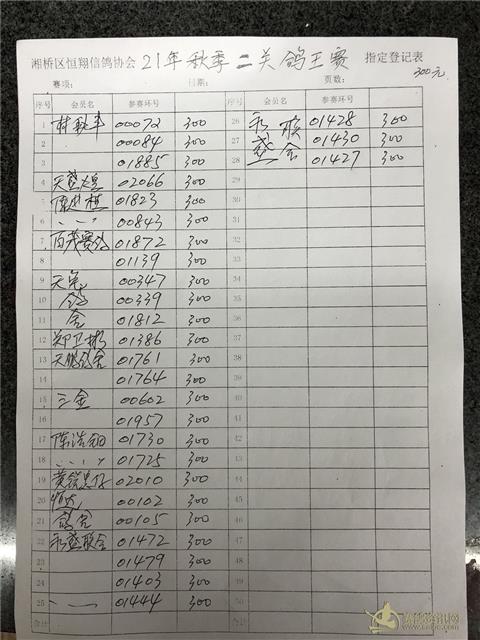 湘桥区恒翔信鸽协会 21年秋季二关鸽王赛 指定登记表
300元
赛项： 日期： 页数：
序号 会员名 参赛环号 序号 会员名 参赛环号
1 林秋丰 00072 300 26 永顺 01428 300
2 00084 300 27 盛合 01430 300
3 01885 300 28 01427 300
4 02066 300 29
5 01823 300 30
6 00843 300 31
7 百茂赛鸽 01872 300 32
8 01139 300 33
9 00347 300 34
10 鸽 00339 300 35
11 舍 01812 300 36
12 郑卫彬 01386 300 37
13 天鹏鸽舍 01761 300 38
14 01764 300 39
15 三金 00602 300 40
16 01957 300 41
17 陈浩翔 01730 300 42
18 01725 300 43
19 02010 300 44
20 恒友 00102 300 45
21 鸽舍 00105 300 46
22 永盛联合 01472 300 47
23 01479 300 48
24 01403 300 49
25 01444 300 50
合计 合计